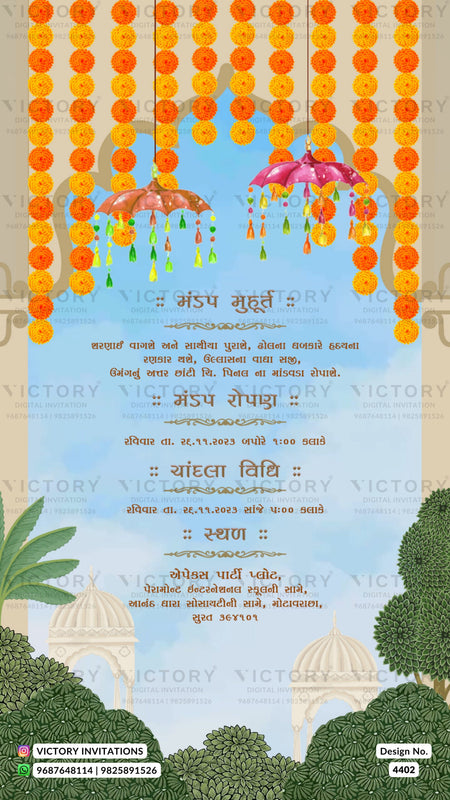 :: મંડપ મુહૂર્ત ::
શરણાઈ વાગશે અને સાથીયા પુરાશે, ઢોલના ધબકારે હૃદયના
રણકાર થશે, ઉલ્લાસના વાઘા સજી,
ઉમંગનું અત્તર છાંટી ચિ. પિનલ ના માંડવડા રોપાશે.
:: મંડપ રોપણ ::
રવિવાર તા. ૨૬.૧૧.૨૦૨૩ બપોરે ૧:૦૦ કલાકે
:: ચાંદલા વિધિ ::
રવિવાર તા. ૨૬.૧૧.૨૦૨૩ સાંજે ૫:૦૦ કલાકે
:: સ્થળ ::
એપેક્સ પાર્ટી પ્લોટ,
પેરામોન્ટ ઇન્ટરનેશનલ સ્કૂલની સામે,
આનંદ ધારા સોસાયટીની સામે, મોટાવરાછા,
સુરત ૩૯૪૧૦૧
VICTORY INVITATIONS
9687648114 | 9825891526
Design No.
4402
VICTORY
DIGITAL INVITATION
9687648114 | 9825891526